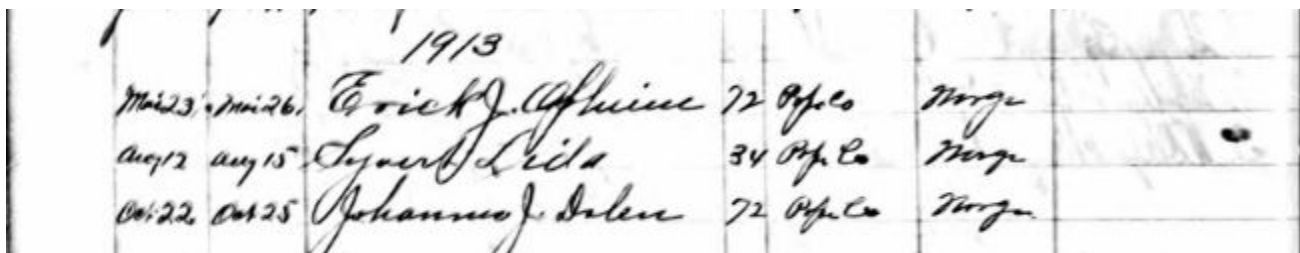 1913
Mai 23, Mai 26, Erick J. 72 Pope Co Norge
Aug 12 Aug 15 Syvert Lida 34 Pope Co Norge
Oct. 22 Oct 25 Johannes J. Dolen 72 Pope Co Norge